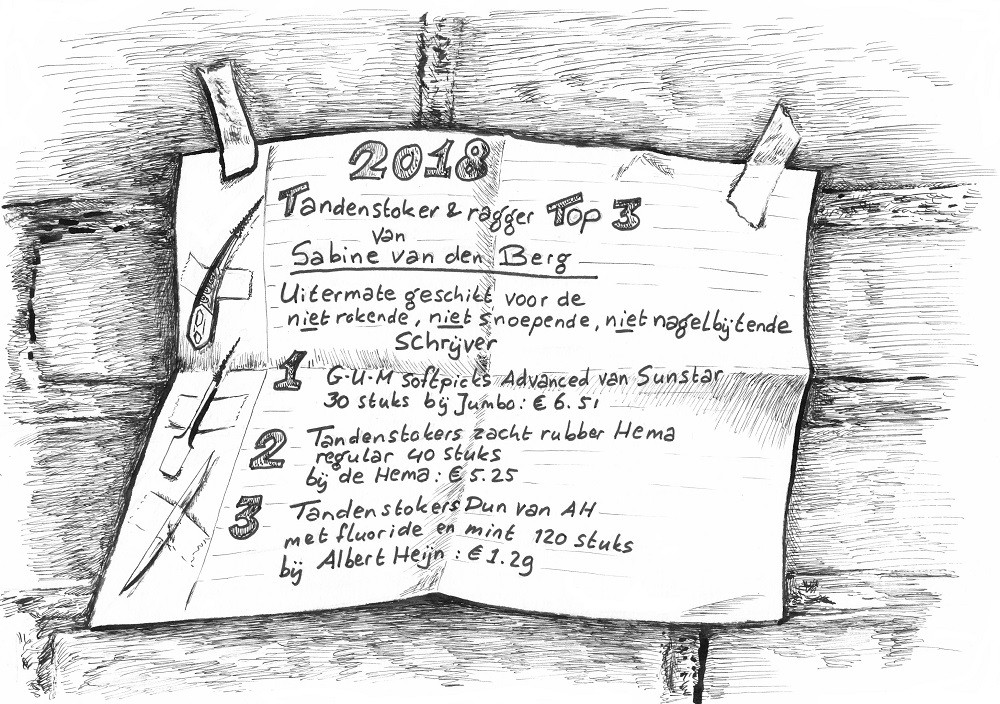 2018
Tandenstoker & ragger Top 3
van
Sabine van den Berg
Uitermate geschikt voor de
niet rokende, niet snoepende, niet nagelbijtende
Schrijver
1 G-U-M Softpicks Advanced van Sunstar
30 stuks bij Jumbo: € 6.51
2 Tandenstokers zacht rubber Hema
regular 40 stuks
bij de Hema: € 5.25
3 Tandenstokers Dun van AH
met fluoride en mint 120 stuks
bij Albert Heijn : € 1.29